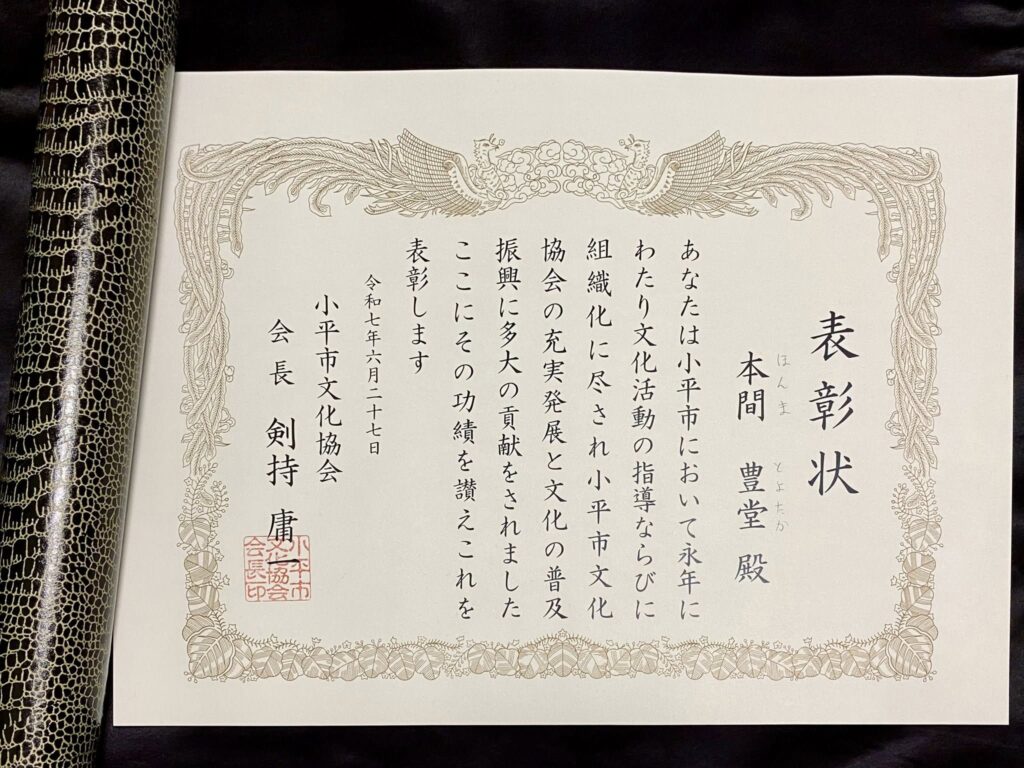 表彰状
ほんま とよたか
本間 豊堂 殿
あなたは小平市において永年に
わたり文化活動の指導ならびに
組織化に尽され小平市文化
協会の充実発展と文化の普及
振興に多大の貢献をされました
ここにその功績を讃えこれを
表彰します
令和七年六月二十七日
小平市文化協会
会長 剣持 庸一
小平市
文化協会
会長印